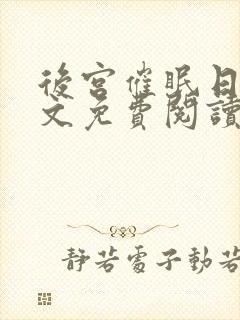 後宮催眠日
文免費閱讀
靜若處子動若